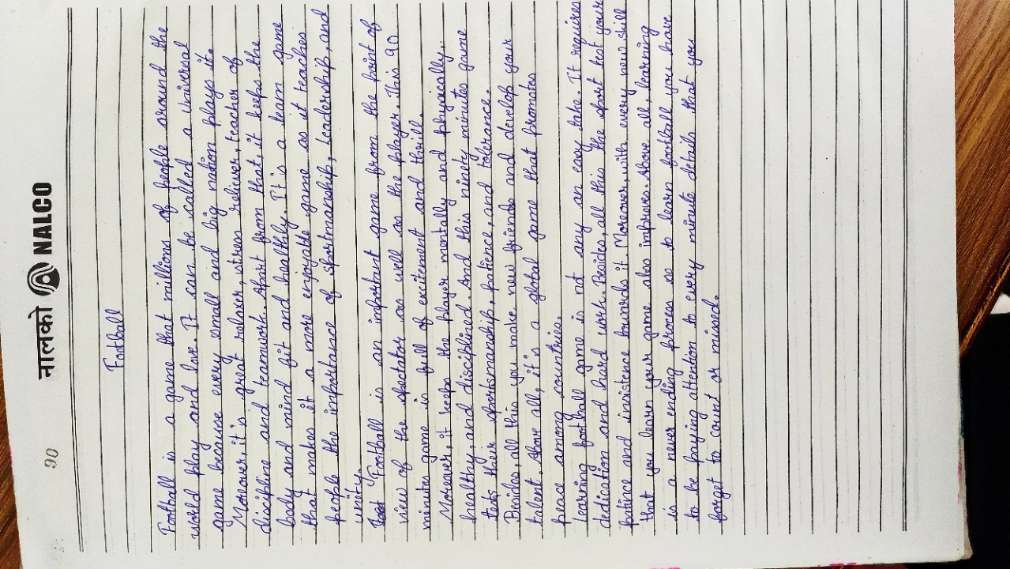 90
नालको NALCO
Football
Football is a game that millions of people around the
world play and love. It can be called a universal
game because every small and big nation plays it.
Moreover, it is great relaxer, stress reliever, teacher of
discipline and teamwork. Apart from that, it keeps the
body and mind fit and healthy. It is a team game
that makes it a more enjoyable game as it teaches
people the importance of sportmanship, leadership, and
unity.
Football is an important game from the point of
view of the spectator as well as the player. This 90
minutes game is full of excitement and thrill.
Moreover, it keeps the player mentally and physically,
healthy, and disciplined. And this ninty minutes game
tests their sportsmanship, patience, and tolerance.
Besides, all this you make new friends and develop your
talent. Above all, it is a global game that promates
peace among countries.
Learning football game is not any an easy take. It requires
dedication and hard work. Besides, all this the sport test your
patince and insistence towards it. Moreover, with every new skill
that you learn your game also improve. Above all, learning
is a never ending proces so to learn football you have
to be paying attention to every minute details that you
forget to count or missed.